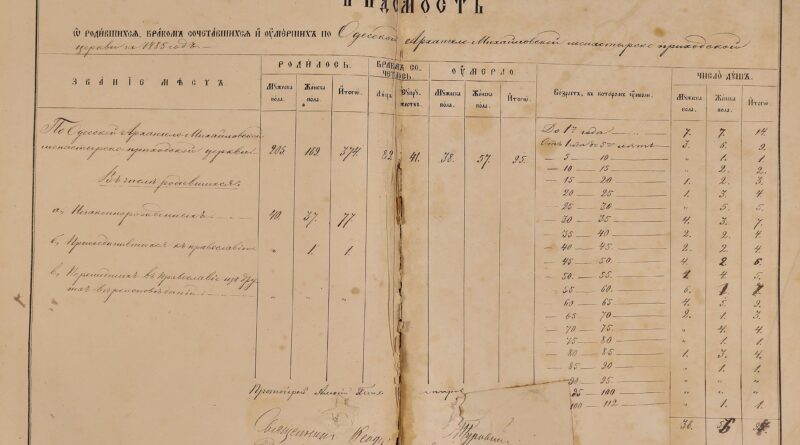 ВѢДОМОСТЬ
Ѡ РОДИВШИХСЯ, БРАКОМЪ СОЧЕТАВШИХСЯ И ОУМЕРШИХЪ ПО Одесской Архангело-Михайловской монастырско приходской
церкви за 1885 годъ.
ЗВАНІЕ МѢСТЪ
РОДИЛОСЬ. БРАКОМЪ СОЧЕТЛОСЬ. ОУМЕРЛО. Возрастъ, въ которомъ умерли. ЧИСЛО ДУШЪ.
Мужеска пола. Женска пола. Итого. Мужеска пола. Женска пола. Итого. Мужеска пола. Женска пола. Итого.
По Одесской Архангело-Михайловской
монастырско-приходской церкви 205. 169 374. 82 41. 38. 57. 95.
Въ числѣ родившихся:
а, Незаконнорожденныхъ 40. 37. 77.
б, Присоединившихся къ православію „ 1. 1.
в, Перешедшихъ въ православіе изъ дру-
гихъ вѣроисповѣданій „ „ „
До 1го года 7. 7. 14.
Отъ 1 года до 5ти лѣтъ 3. 6. 9.
— 5 — 10 „ 1. 1.
— 10 — 15 „ 2. 2.
— 15 — 20 1. 2. 3.
— 20 — 25 1. 3. 4
— 25 — 30 „ 5. 5.
— 30 — 35 4. 3. 7.
— 35 — 40 2. 2. 4
— 40 — 45 2. 2. 4.
— 45 — 50. 4. 2 6.
— 50. — 55. 1 4. 5.
— 55 — 60. 6. 1 7
— 60 — 65 4. 5. 9.
— 65 — 70 2. 1. 3.
— 70 — 75. „ 4. 4.
— 75 — 80 „ 1. 1.
— 80 — 85 1. 3. 4.
— 85 — 90 „ 1. 1.
— 90 — 95. „ „ „
95 — 100 „ „ „
100 — 112 „ 1. 1.
38.
Протоіерей
Священникъ